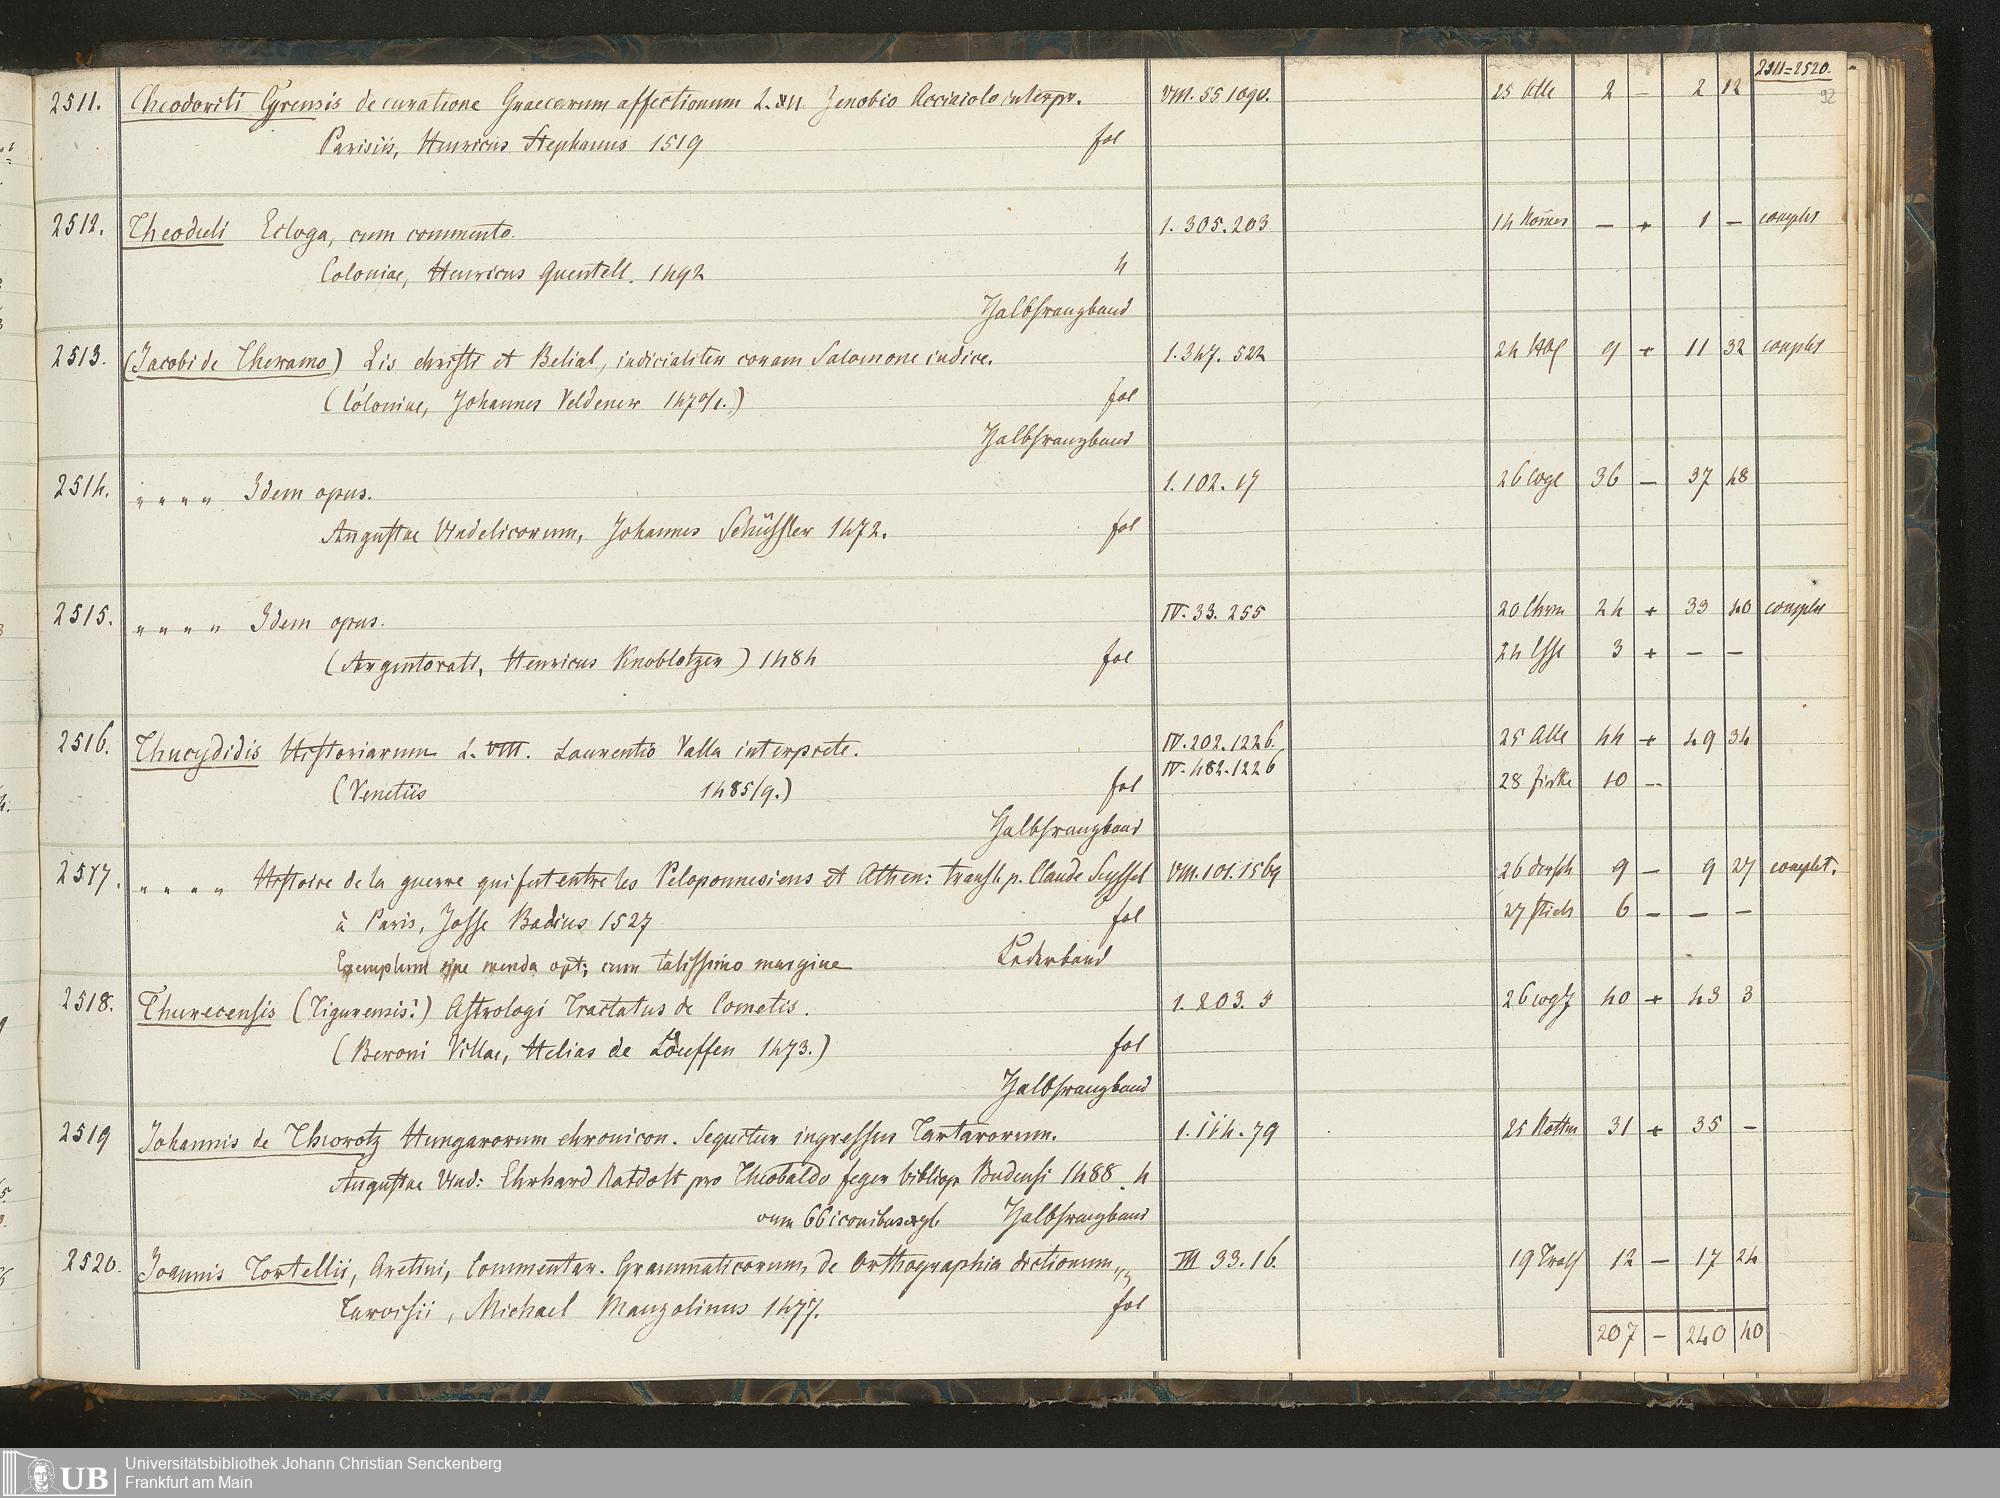 2511=2520.
92
2511. Theodoriti Cyrensis de curatione Graecarum affectionum L. XII Zenobio Acciaiolo interpr. VIII. 55 1090. 25 Alle 2 – 2 12
Parisiis, Henricus Stephanus 1519 fol
2512. Theoduli Ecloga, cum commento. 1. 305. 203 14 – + 1 – complet
Coloniae, Henricus Quentell. 1492 4
Halbfranzband
2513. (Jacobi de Theramo) Lis christi et Belial, iudicialiter coram Salomone iudice. 1. 347. 522 24 9 + 11 32 complet
(Coloniae, Johannes Veldener 1470/1.) fol
Halbfranzband
2514. „ „ „ „ Idem opus. 1. 102. 17 26 36 – 37 48
Augustae Vindelicorum, Johannes Schüssler 1472. fol
2515. „ „ „ „ Idem opus. IV. 33. 255 20 24 + 33 40 complet
(Argentorati, Henricus Knoblotzer) 1484 fol 24 3 + – –
2516. Thucydidis Historiarum L. VIII. Laurentio Valla interprete. IV. 202. 1226. 25 Alle 44 + 49 34
IV. 482. 1226
(Venetiis 1485/9.) fol 28 10 –
Halbfranzband
2517. „ „ „ „ Histoire de la guerre qui fut entre les Peloponnesiens et Athen: transl. p. Claude Seyssel VIII. 101. 1569 26 9 – 9 27 complet.
à Paris, Josse Badius 1527 fol 27 6 – – –
Exemplum sine menda opt; cum latissimo margine Lederband
2518. Thurecensis (Tigurensis?) Astrologi Tractatus de Cometis. 1. 203. 5 26 40 + 43 3
(Beroni Villae, Helias de Louffen 1473.) fol
Halbfranzband
2519 Johannis de Thworotz Hungarorum chronicon. Sequitur ingressus Tartarorum. 1. 114. 79 25 31 + 35 –
Augustae Vind: Ehrhard Ratdolt pro Theobaldo feger bibliop. Budensi 1488. 4
cum 66 iconibus xyl. Halbfranzband
2520. Joannis Tortellii, Aretini, Commentar. Grammaticorum, de Orthographia dictionum, III 33. 16. 19 12 – 17 24
Tarvisii, Michael Manzolinus 1477. fol
207 – 240 40
UB Universitätsbibliothek Johann Christian Senckenberg
Frankfurt am Main